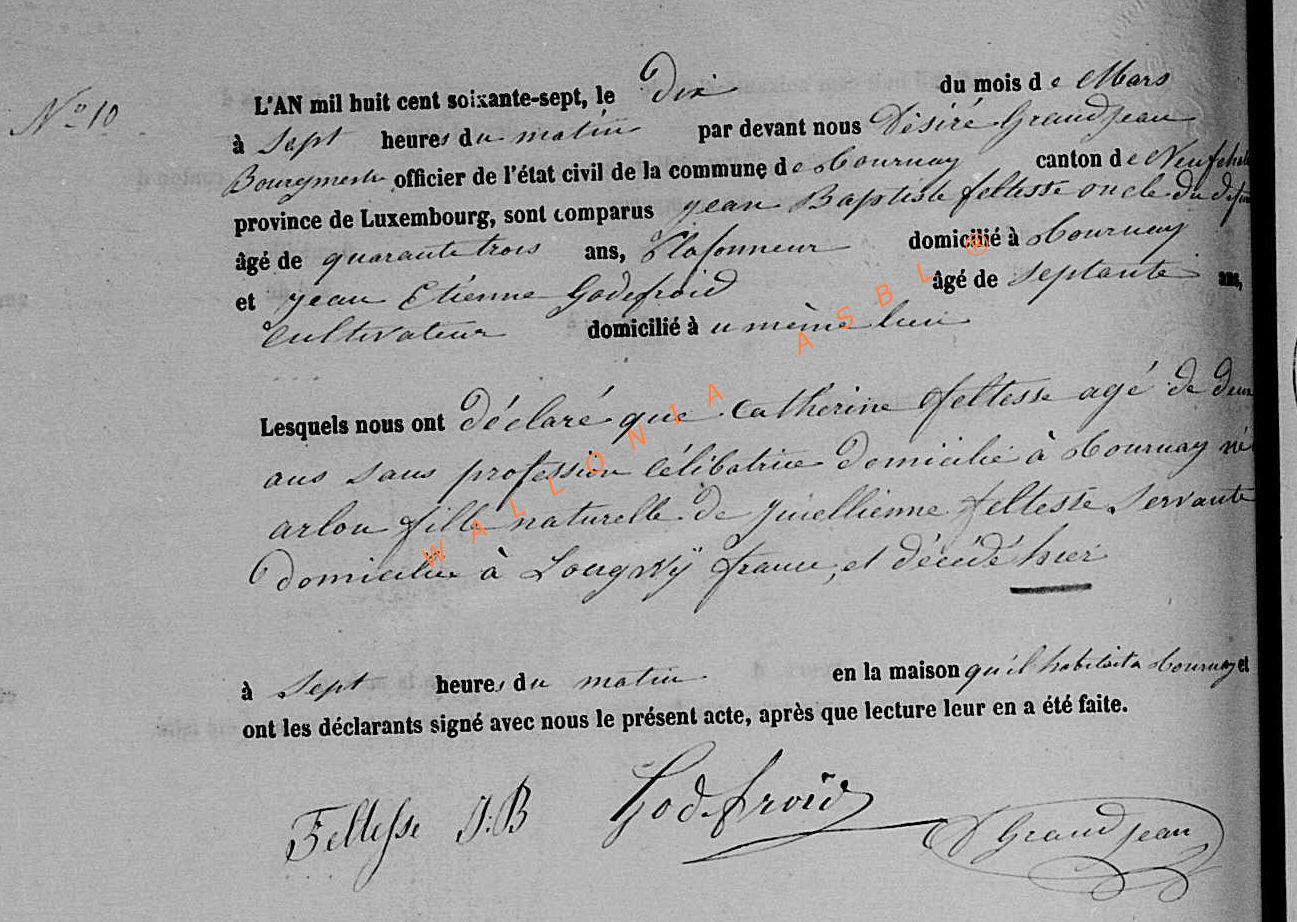 N° 10
L'AN mil huit cent soixante-sept, le Dix du mois de Mars
à Sept heures du matin par devant nous Désiré Grandjean
Bourgmestre officier de l'état civil de la commune de Tournay canton de Neufchât
province de Luxembourg, sont comparus jean Baptiste feltesse oncle du défun
âgé de quarante trois ans, Plafonneur domicilié à Tournay
et jean Etienne Godefroid âgé de septante ans,
cultivateur domicilié à u même lieu
Lesquels nous ont déclaré que Catherine feltesse agé de deux
ans sans profession célibatrice domicilié à Tournay né
arlon fille naturelle de feltesse servante
domicilié à france, et décédé hier
à Sept heures du matin en la maison qu'il habitait à Tournay et
ont les déclarants signé avec nous le présent acte, après que lecture leur en a été faite.
Feltesse J:B Godefroid D Grandjean
WALLONIA ASBL ®